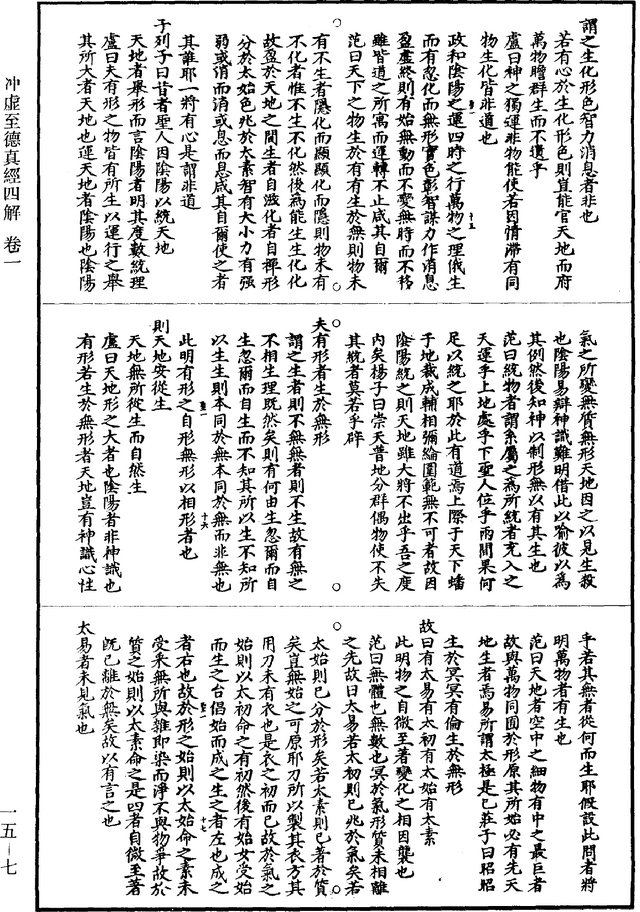 謂之生化形色智力消息者非也
若有心於生化形色則豈能官天地而府
萬物贍群生而不遺乎
盧曰神之獨運非物能使若因情滯有同
物生化皆非道也
政和陰陽之運四時之行萬物之理俄生
而有忽化而無形實色彰智謀力作消息
盈虛終則有始無動而不變無時而不移
雖皆道之所寓而運轉不止咸其自爾
范曰天下之物生於有有生於無則物未
有不生者隱化而顯顯化而隱則物未有
不化者惟不生不化然後為能生生化化
故盈於天地之間生者自滋化者自禪形
分於太始色兆於太素智有大小力有强
弱或消而消或息而息咸其自爾使之者
其誰耶一將有心是謂非道
子列子曰昔者聖人因陰陽以統天地
天地者舉形而言陰陽者明其度數統理
盧曰夫有形之物皆有所生以運行之舉
其所大者天地也運天地者陰陽也陰陽
冲虛至德真經四解 卷一
氣之所變無質無形天地因之以見生殺
也陰陽易辯神識難明借此以喻彼以為
其例然後知神以制形無以有其生也
范曰統物者謂系屬之為所統者充入之
天運乎上地處乎下聖人位乎兩間果何
足以統之耶於此有道焉上際于天下蟠
于地裁成輔相彌綸圍範無不可者故因
陰陽統之則天地雖大將不出乎吾之度
內矣楊子曰崇天普地分群偶物使不失
其統者莫若乎辟
夫有形者生於無形
謂之生者則不無無者則不生故有無之
不相生理既然矣則有何由生忽爾而自
生忽爾而自生而不知其所以生不知所
以生生則本同於無本同於無而非無也
此明有形之自形無形以相形者也
則天地安從生
天地無所從生而自然生
盧曰天地形之大者也陰陽者非神識也
有形若生於無形者天地豈有神識心性
乎若其無者從何而生耶假設此問者將
明萬物者有生也
范曰天地者空中之細物有中之最巨者
故與萬物同囿於形原其所始必有先天
地生者焉易所謂太極是已莊子曰昭昭
生於冥冥有倫生於無形
故曰有太易有太初有太始有太素
此明物之自微至著變化之相因襲也
范曰無體也無數也冥於氣形質未相離
之先故曰太易若太初則已兆於氣矣若
太始則已分於形矣若太素則已著於質
矣豈無始之可原耶刀所以製其衣方其
用刀未有衣也是衣之初而已故於氣之
始則以太初命之有初然後有始女受始
而生之台倡始而成之生之者左也成之
者右也故於形之始則以太始命之素未
受采無所與雜即染而淨不與物爭故於
質之始則以太素命之是四者自微至著
既已離於無矣故以有言之也
太易者未見氣也
一五－七